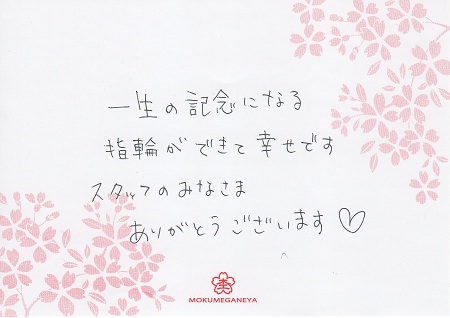 一生の記念になる
指輪ができて幸せです
スタッフのみなさま
ありがとうございます♡
MOKUMEGANEYA